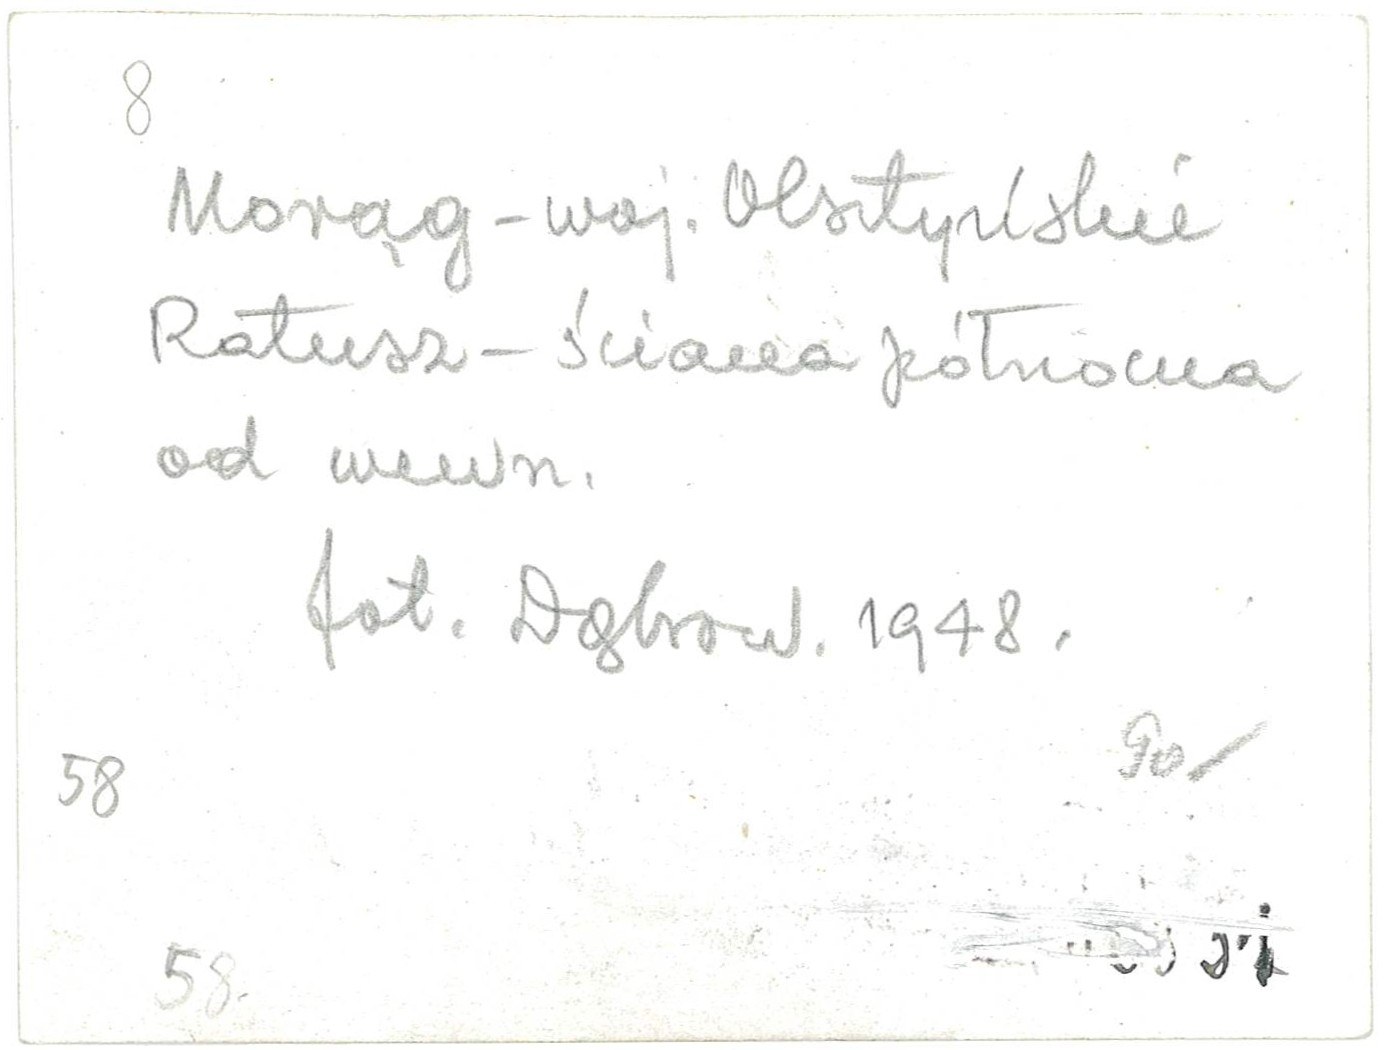 8
Morąg - woj. Olsztyńskie
Ratusz - ściana północna
od wewn.
fot. Dąbrow. 1948.
90/
58
58.